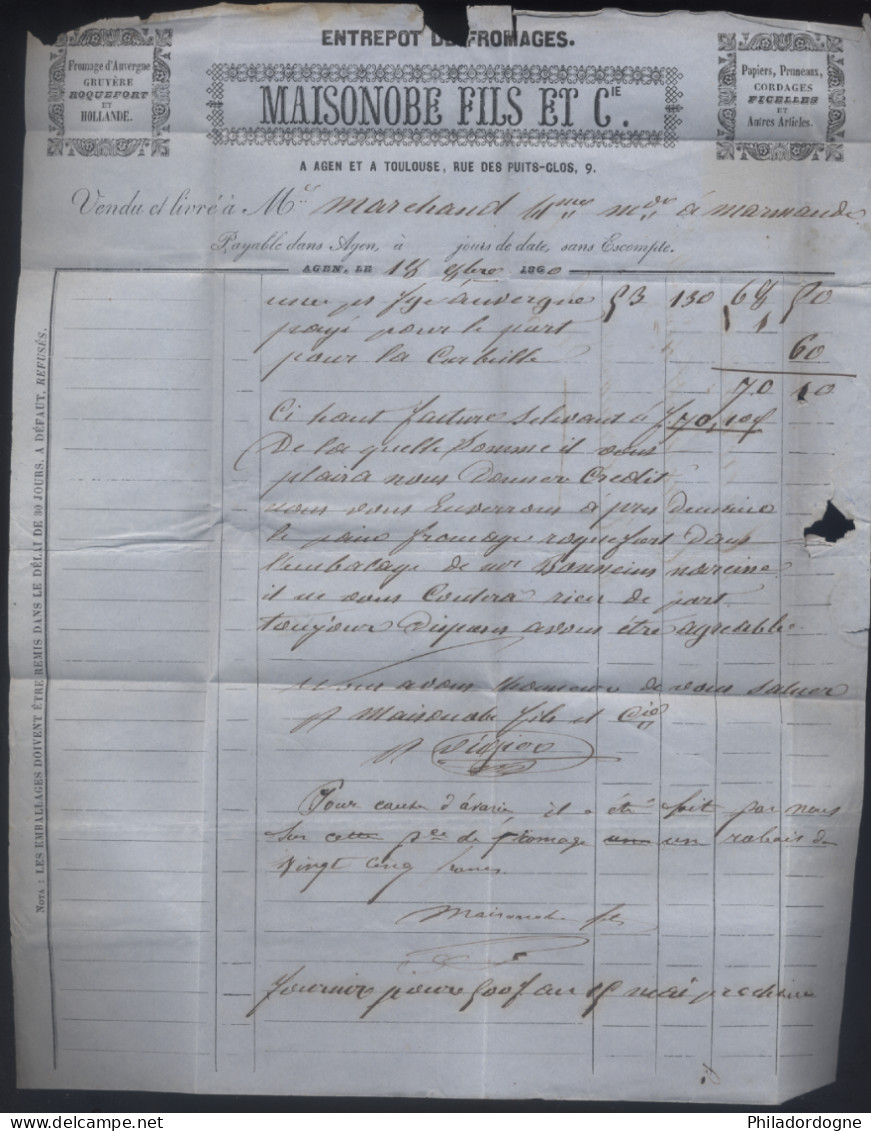 ENTREPOT DE FROMAGES.
Fromage d'Auvergne
GRUYÈRE
ROQUEFORT
ET
HOLLANDE.
MAISONOBE FILS ET CIE.
Papiers, Pruneaux,
CORDAGES
FICELLES
ET
Autres Articles.
A AGEN ET A TOULOUSE, RUE DES PUITS-CLOS, 9.
Vendu et livré à Mr marchand à marmande
Payable dans Agen, à jours de date, sans Escompte.
AGEN, LE 18 1860
auvergne 53 130 68 50
payé pour le port 1
pour la Corbeille 60
70 10
Ci haut facture S'elevant à f 70,10
De la quelle Somme il vous
plaira nous Donner Credit
nous vous Enverrons après Demain
le pain fromage roquefort Dans
l'embalage de
il ne vous Coutera rien de port
toujour Disposes a vous être agreable
nous avons l'honneur de vous saluer
Maisonobe fils et Cie
Pour cause d'avarie il a été fait par nous
Sur cette pce de fromage un un rabais de
Vingt cinq francs
Maisonobe fils
fournir pour 500f au 15 mai prochain
NOTA : LES EMBALLAGES DOIVENT ÊTRE REMIS DANS LE DÉLAI DE 30 JOURS. A DÉFAUT, REFUSÉS.
Philadordogne